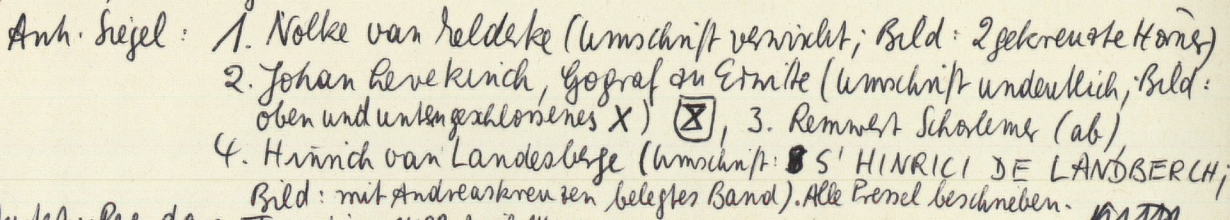 Anh. Siegel: 1. Nolke van Melderke (Umschrift verwischt; Bild: 2 gekreuzte Hörner)
2. Johan Levekinch, Gograf zu Erwitte (Umschrift undeutlich; Bild:
oben und unten geschlossenes X) , 3. Remwert Schorlemer (ab),
4. Hinrich van Landesberge (Umschrift: S' HINRICI DE LANDBERCH;
Bild: mit Andreaskreuzen belegtes Band). Alle Pressel beschrieben.